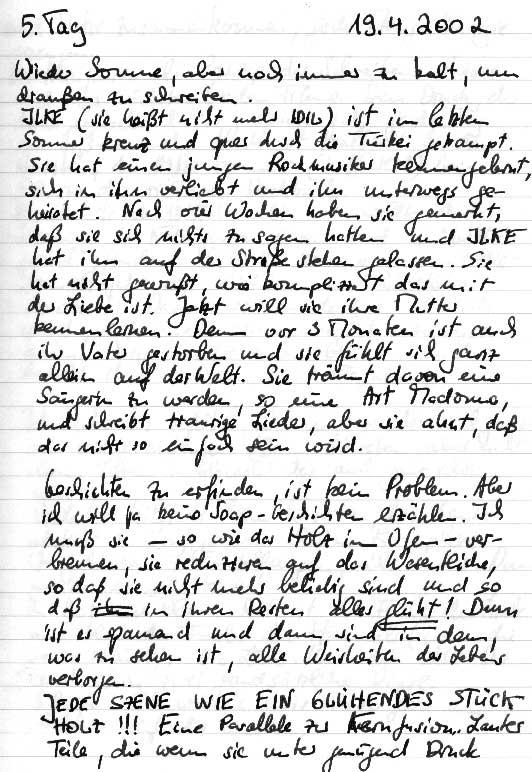 5. Tag 19.4.2002
Wieder Sonne, aber noch immer zu kalt, um
draußen zu schreiben.
ILKE (sie heißt nicht mehr IDIL) ist im letzten
Sommer kreuz und quer durch die Türkei getrampt.
Sie hat einen jungen Rockmusiker kennengelernt,
sich in ihn verliebt und ihn unterwegs ge-
heiratet. Nach vier Wochen haben sie gemerkt,
daß sie sich nichts zu sagen hatten und ILKE
hat ihn auf der Straße stehen gelassen. Sie
hat nicht gewußt, wie kompliziert das mit
der Liebe ist. Jetzt will sie ihre Mutter
kennenlernen. Denn vor 3 Monaten ist auch
ihr Vater gestorben und sie fühlt sich ganz
allein auf der Welt. Sie träumt davon eine
Sängerin zu werden, so eine Art Madonna,
und schreibt traurige Lieder, aber sie ahnt, daß
das nicht so einfach sein wird.
Geschichten zu erfinden, ist kein Problem. Aber
ich will ja keine Soap-Geschichten erzählen. Ich
muß sie – so wie das Holz im Ofen – ver-
brennen, sie reduzieren auf das Wesentliche,
so daß sie nicht mehr beliebig sind und so
daß in ihren Resten alles glüht! Dann
ist es spannend und dann sind in dem,
was zu sehen ist, alle Weisheiten des Lebens
verborgen.
JEDE SZENE WIE EIN GLÜHENDES STÜCK
HOLZ !!! Eine Parallele zur Kernfusion. Lauter
Teile, die wenn sie unter genügend Druck